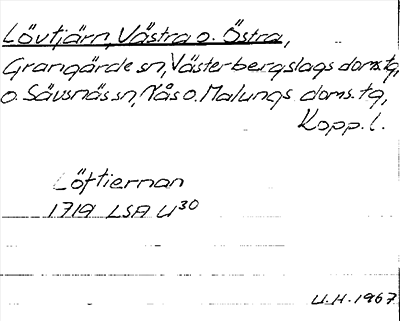 Lövtjärn, Västra o. Östra,
Grangärde sn, Västerbergslags doms.tg,
o. Sävsnäs sn, Nås o. Malungs doms. tg,
Kopp. l.
Löftiernan
1719 LSA U30
U.H. 1967